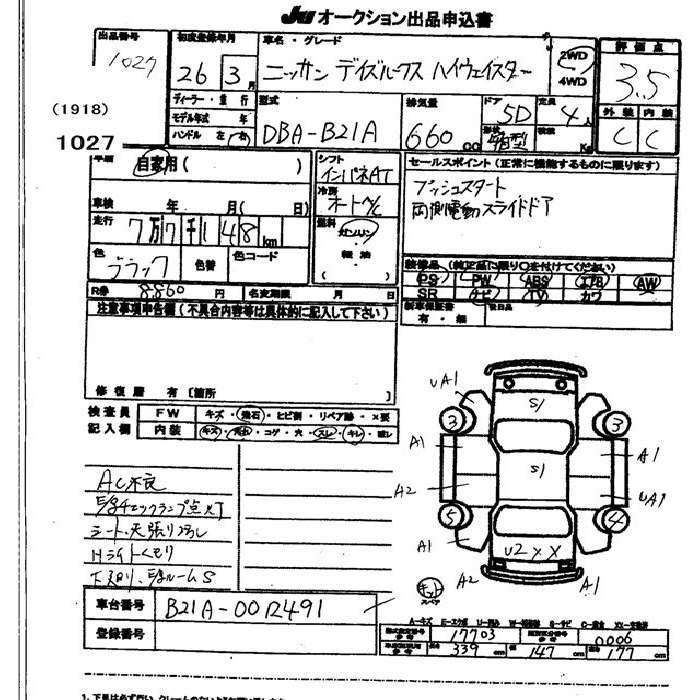 JU オークション出品申込書
出品番号 初度登録年月 車名・グレード 評価点
1027 26 3月 ニッサン デイズルークス ハイウェイスター 2WD 4WD 3.5
ディーラー・並行 型式 排気量 ドア 定員 外装 内装
(1918) モデル年式 年 DBA-B21A 660 CC 5D 4人 C C
1027 ハンドル 左 右 形状 箱型 積載 Kg
車歴 自家用( ) シフト インパネAT セールスポイント(正常に機能するものに限ります)
車検 年 月( 日) 冷房 オートA/C プッシュスタート
走行 7万7千148km 燃料 ガソリン 両側電動スライドドア
色 ブラック 色替 色コード 軽油 ( )
装備品(純正品に限り○を付けてください)
PS PW ABS エアB AW
SR ナビ TV カワ
R券 8860円 名変期限 月 日 新車保証書 有・無 後日品
注意事項申告欄(不具合内容等は具体的に記入して下さい)
修復歴 有〔箇所 〕
検査員 FW キズ・飛石・ヒビ割・リペア跡・×要
記入欄 内装 キズ・汚れ・コゲ・穴・スレ・キレ・破レ
AC不良
シート・天張り汚れ
Hライトくもり
車台番号 B21A-0012491
登録番号
UA1 S/
3 3
A1 S/ A1
A2 UA1
5 4
A1 U2 XX
A2 A1
キズ スペア
A-キズ E-エクボ U-凹み W-補修跡 S-サビ C-腐食 XX-交換済
型式指定番号 参考 17703 類別区分番号 参考 0006
車両寸法 参考 長さ 339cm 幅 147cm 高さ 177cm